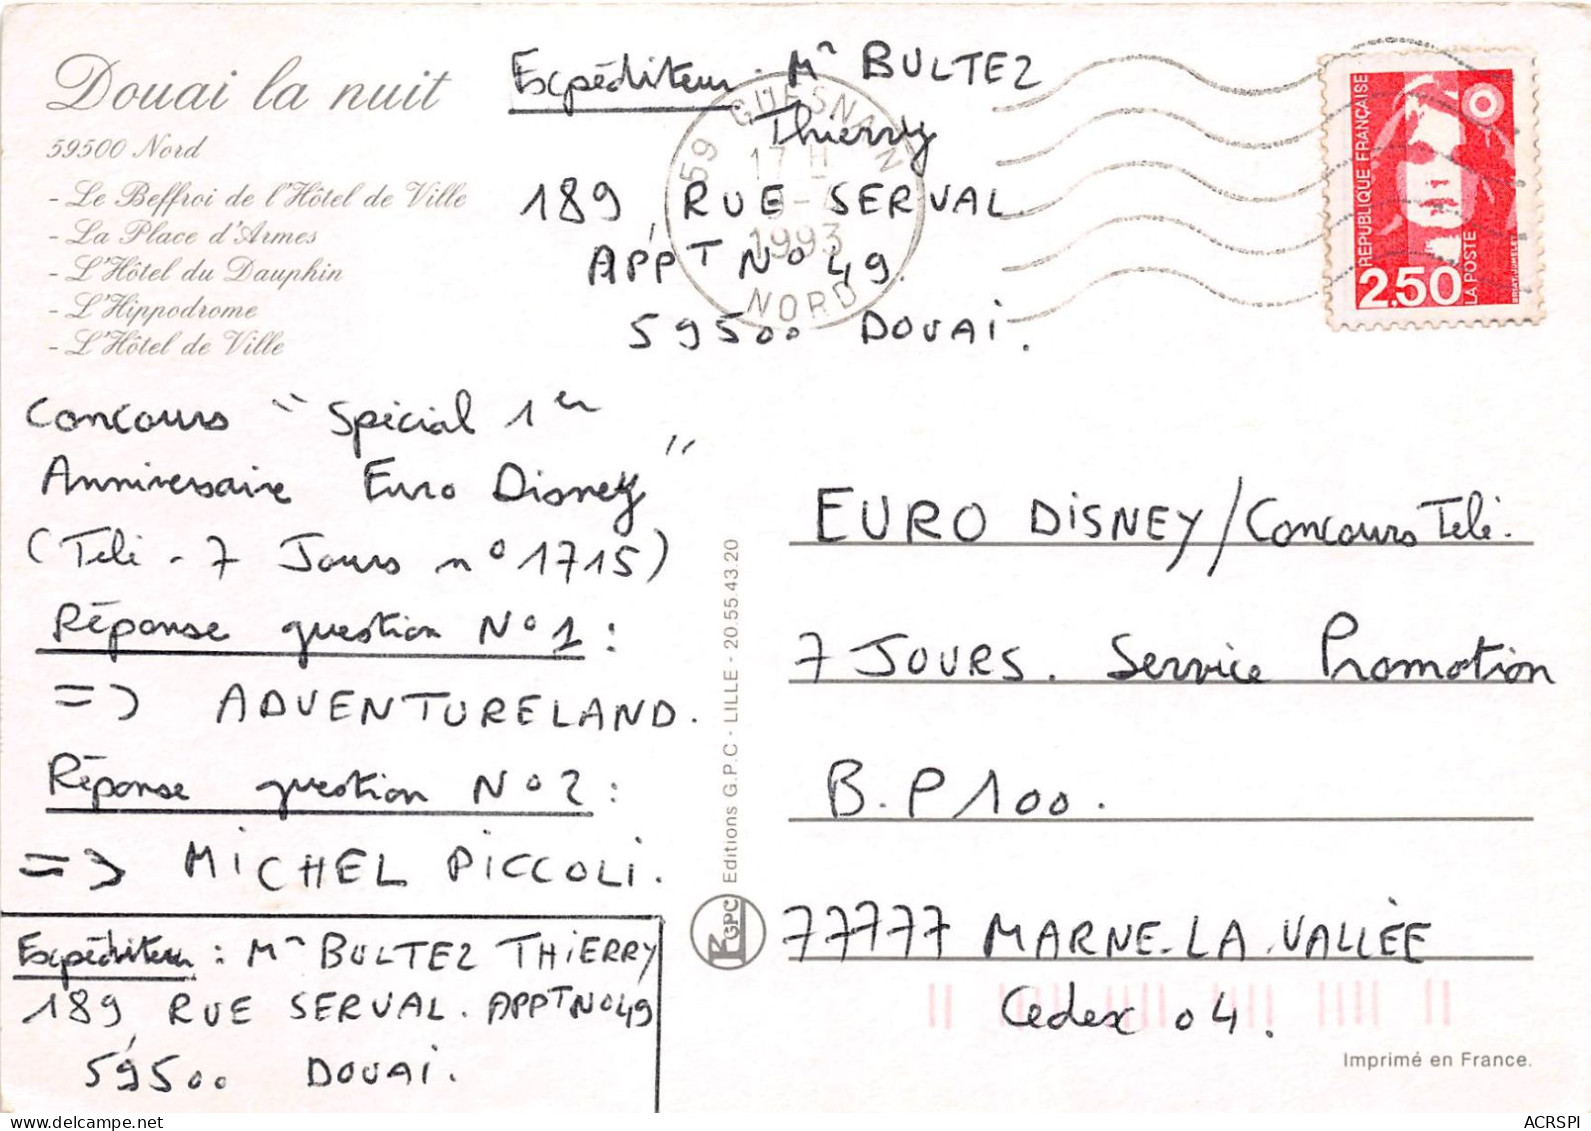 Douai la nuit
59500 Nord
- Le Beffroi de l'Hôtel de Ville
- La Place d'Armes
- L'Hôtel du Dauphin
- L'Hippodrome
- L'Hôtel de Ville
Expéditeur. Mr BULTEZ
Thierry
189, RUE SERVAL
APPT No 49.
59500 DOUAi.
59 GUESNAIN
17 H
1993
NORD
RÉPUBLIQUE FRANÇAISE
2.50
LA POSTE
Concours "Spécial 1er
Anniversaire Euro Disney"
(Télé - 7 Jours no 1715)
Réponse question No 1 :
=> ADVENTURELAND.
Réponse question No 2 :
=> MiCHEL PiCCOLi.
Expéditeur : Mr BULTEZ THiERRY
189, RUE SERVAL. APPT No 49
59500 DOUAi.
Editions G.P.C - LILLE - 20.55.43.20
GPC
EURO DiSNEY/Concours Télé.
7 JOURS. Service Promotion
B.P 100.
77777 MARNE-LA-VALLÉE
Cedex 04.
Imprimé en France.
ACRSPI